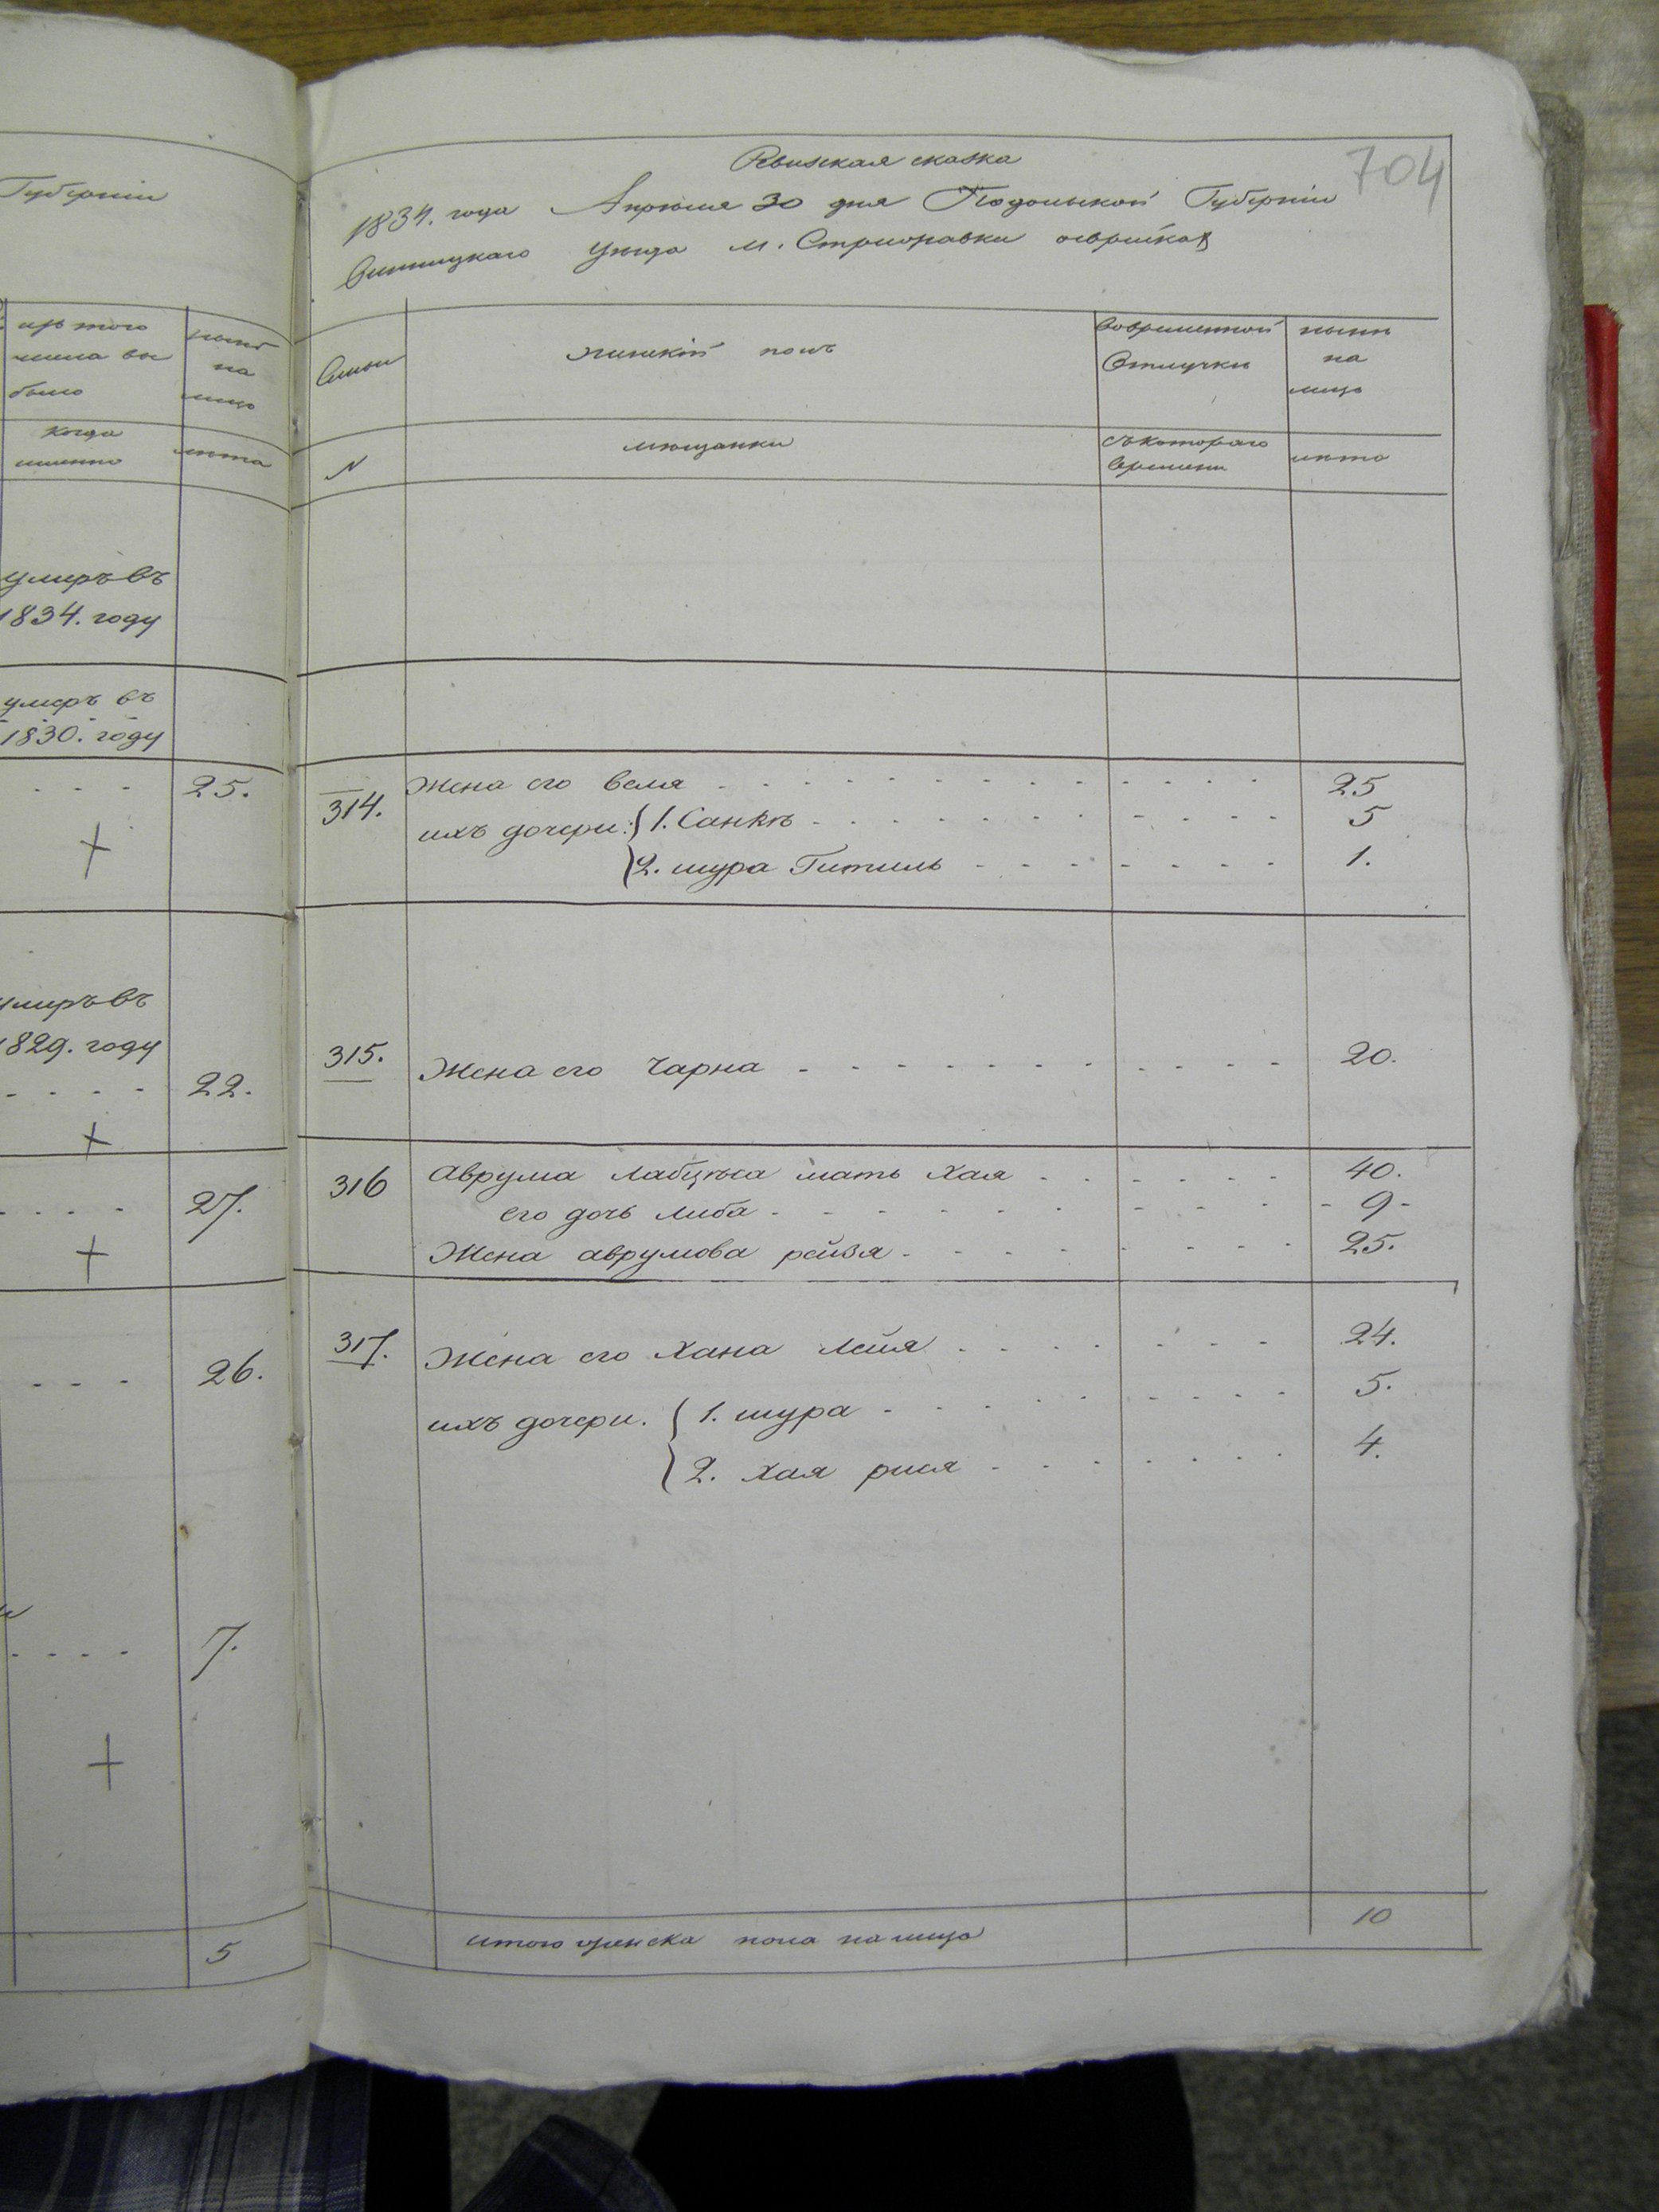 Губерніи
изъ того
числа вы
было
ныне
на
лицо
когда
именно
лета
умиръ въ
1834. году
умеръ въ
1830. году
25.
умиръ въ
1829. году
22.
27.
26.
7.
5
704
Ревизская сказка
1834. года Апреля 30 дня Подольской Губерніи
Винницкаго Уезда м. Стрижавки
Семьи
женскій полъ
вовременной
Отлучки
ныне
на
лицо
N
мещанки
съ котораго
времени
лета
314. Жена его Веля 25
ихъ дочери: 1. Санкѣ 5
2. шура Гитиль 1.
315. Жена его Чарна 20.
316 Аврума мать Хая 40.
его дочь Либа - 9 -
Жена аврумова рейзя 25.
317. Жена его Хана Лейя 24.
ихъ дочери. 1. шура 5.
2. Хая рися 4.
итого женска пола на лицо 10